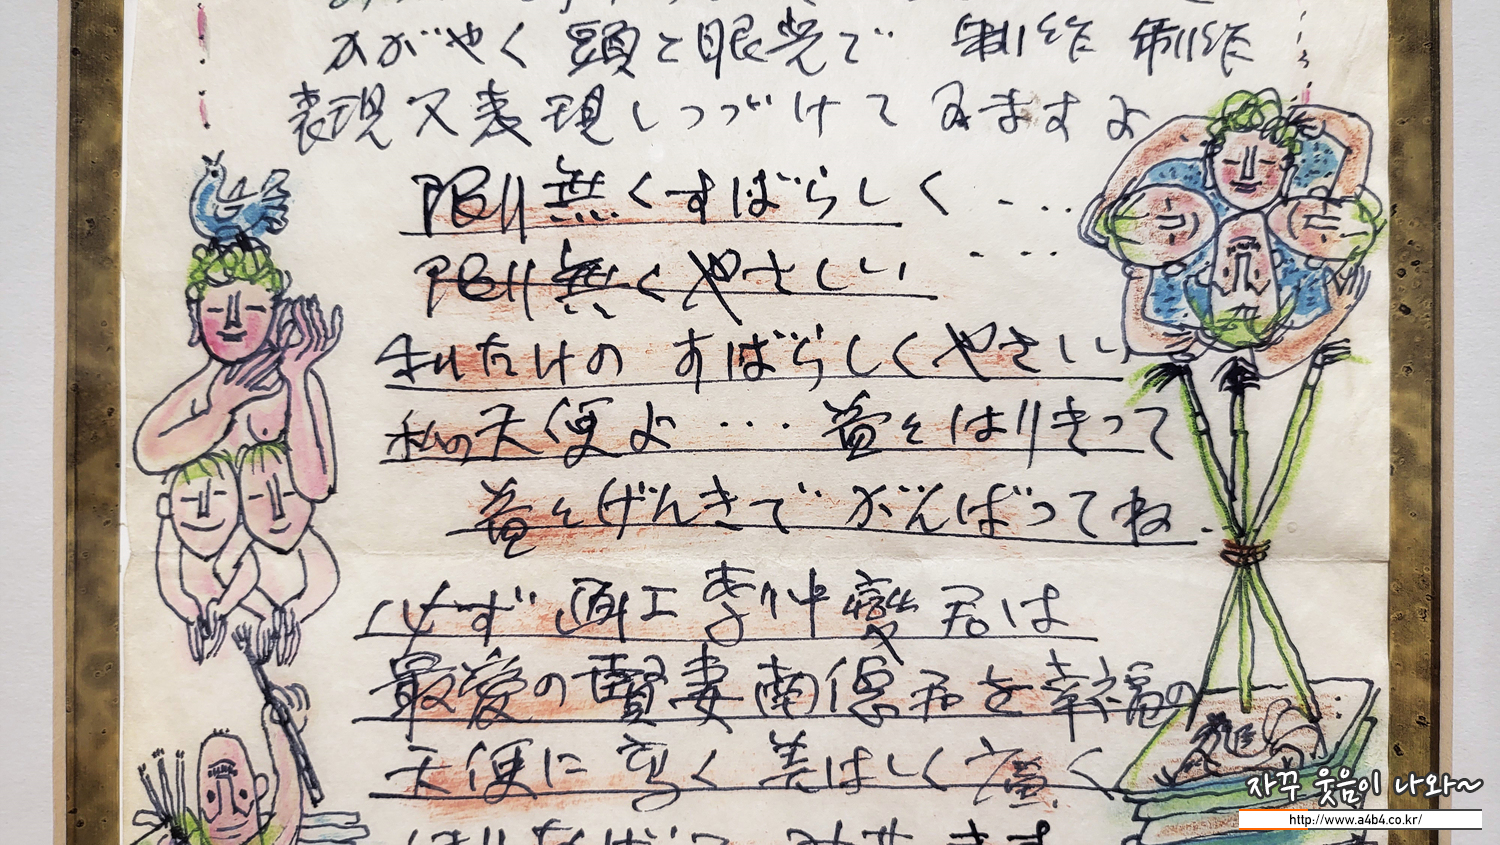 かがやく 頭と眼光で 制作 制作
表現 又 表現しつづけて みますよ
限り無くすばらしく ・・・
限り無くやさしい ・・・・
私だけの すばらしくやさしい
私の天使よ ・・・ 胸をはりきって
げんきで がんばってね
必ず 画工李仲燮君は
最愛の賢妻南德君を幸福の
天使に 高く 美しく 広く
자꾸 웃음이 나와~
http://www.a4b4.co.kr/